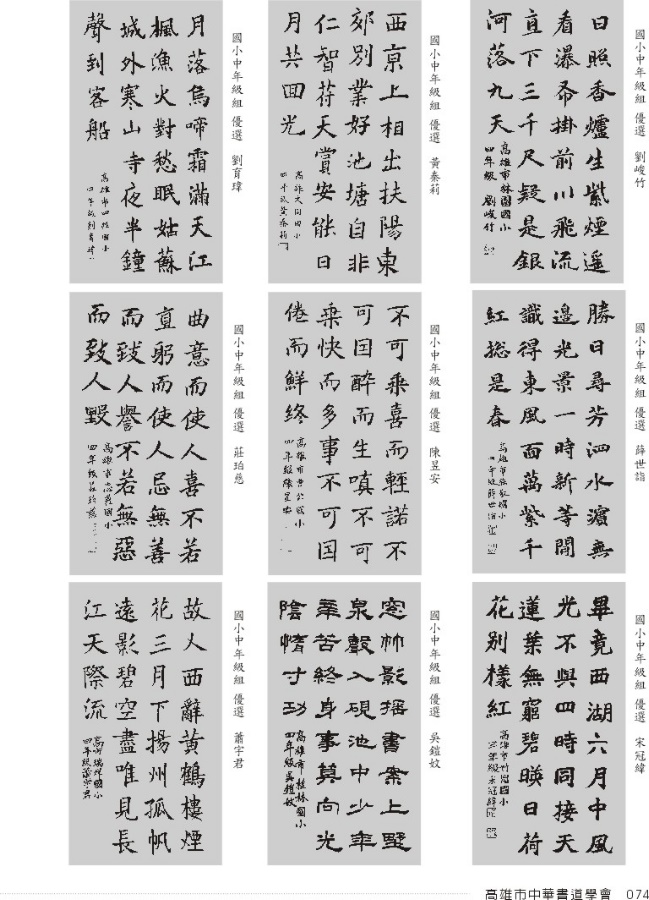 國小中年級組 優選 劉峻竹
日照香爐生紫煙遥
看瀑布掛前川飛流
直下三千尺疑是銀
河落九天
高雄市林園國小
四年級 劉峻竹
國小中年級組 優選 黃秦莉
西亰上相出扶陽東
郊別業好池塘自非
仁智苻天賞安能日
月共回光
國小中年級組 優選 劉育瑋
月落烏啼霜滿天江
楓漁火對愁眠姑蘇
城外寒山寺夜半鐘
聲到客船
國小中年級組 優選 薛世詣
勝日尋芳泗水濱無
邊光景一時新等閒
識得東風面萬紫千
紅総是春
國小中年級組 優選 陳昱安
不可乘喜而輕諾不
可因醉而生嗔不可
乘快而多事不可因
倦而鮮終
國小中年級組 優選 莊珀慈
曲意而使人喜不若
直躬而使人忌無善
而致人譽不若無惡
而致人毀
國小中年級組 優選 宋冠緯
畢竟西湖六月中風
光不與四時同接天
蓮葉無窮碧暎日荷
花別樣紅
國小中年級組 優選 吳鎧妏
窓竹影摇書案上野
泉聲入硯池中少年
辛苦終身事莫向光
陰惰寸功
高雄市桂林國小
四年級吳鎧妏
國小中年級組 優選 蕭宇君
故人西辭黃鶴樓煙
花三月下揚州孤帆
遠影碧空盡唯見長
江天際流
高雄市中華書道學會 074